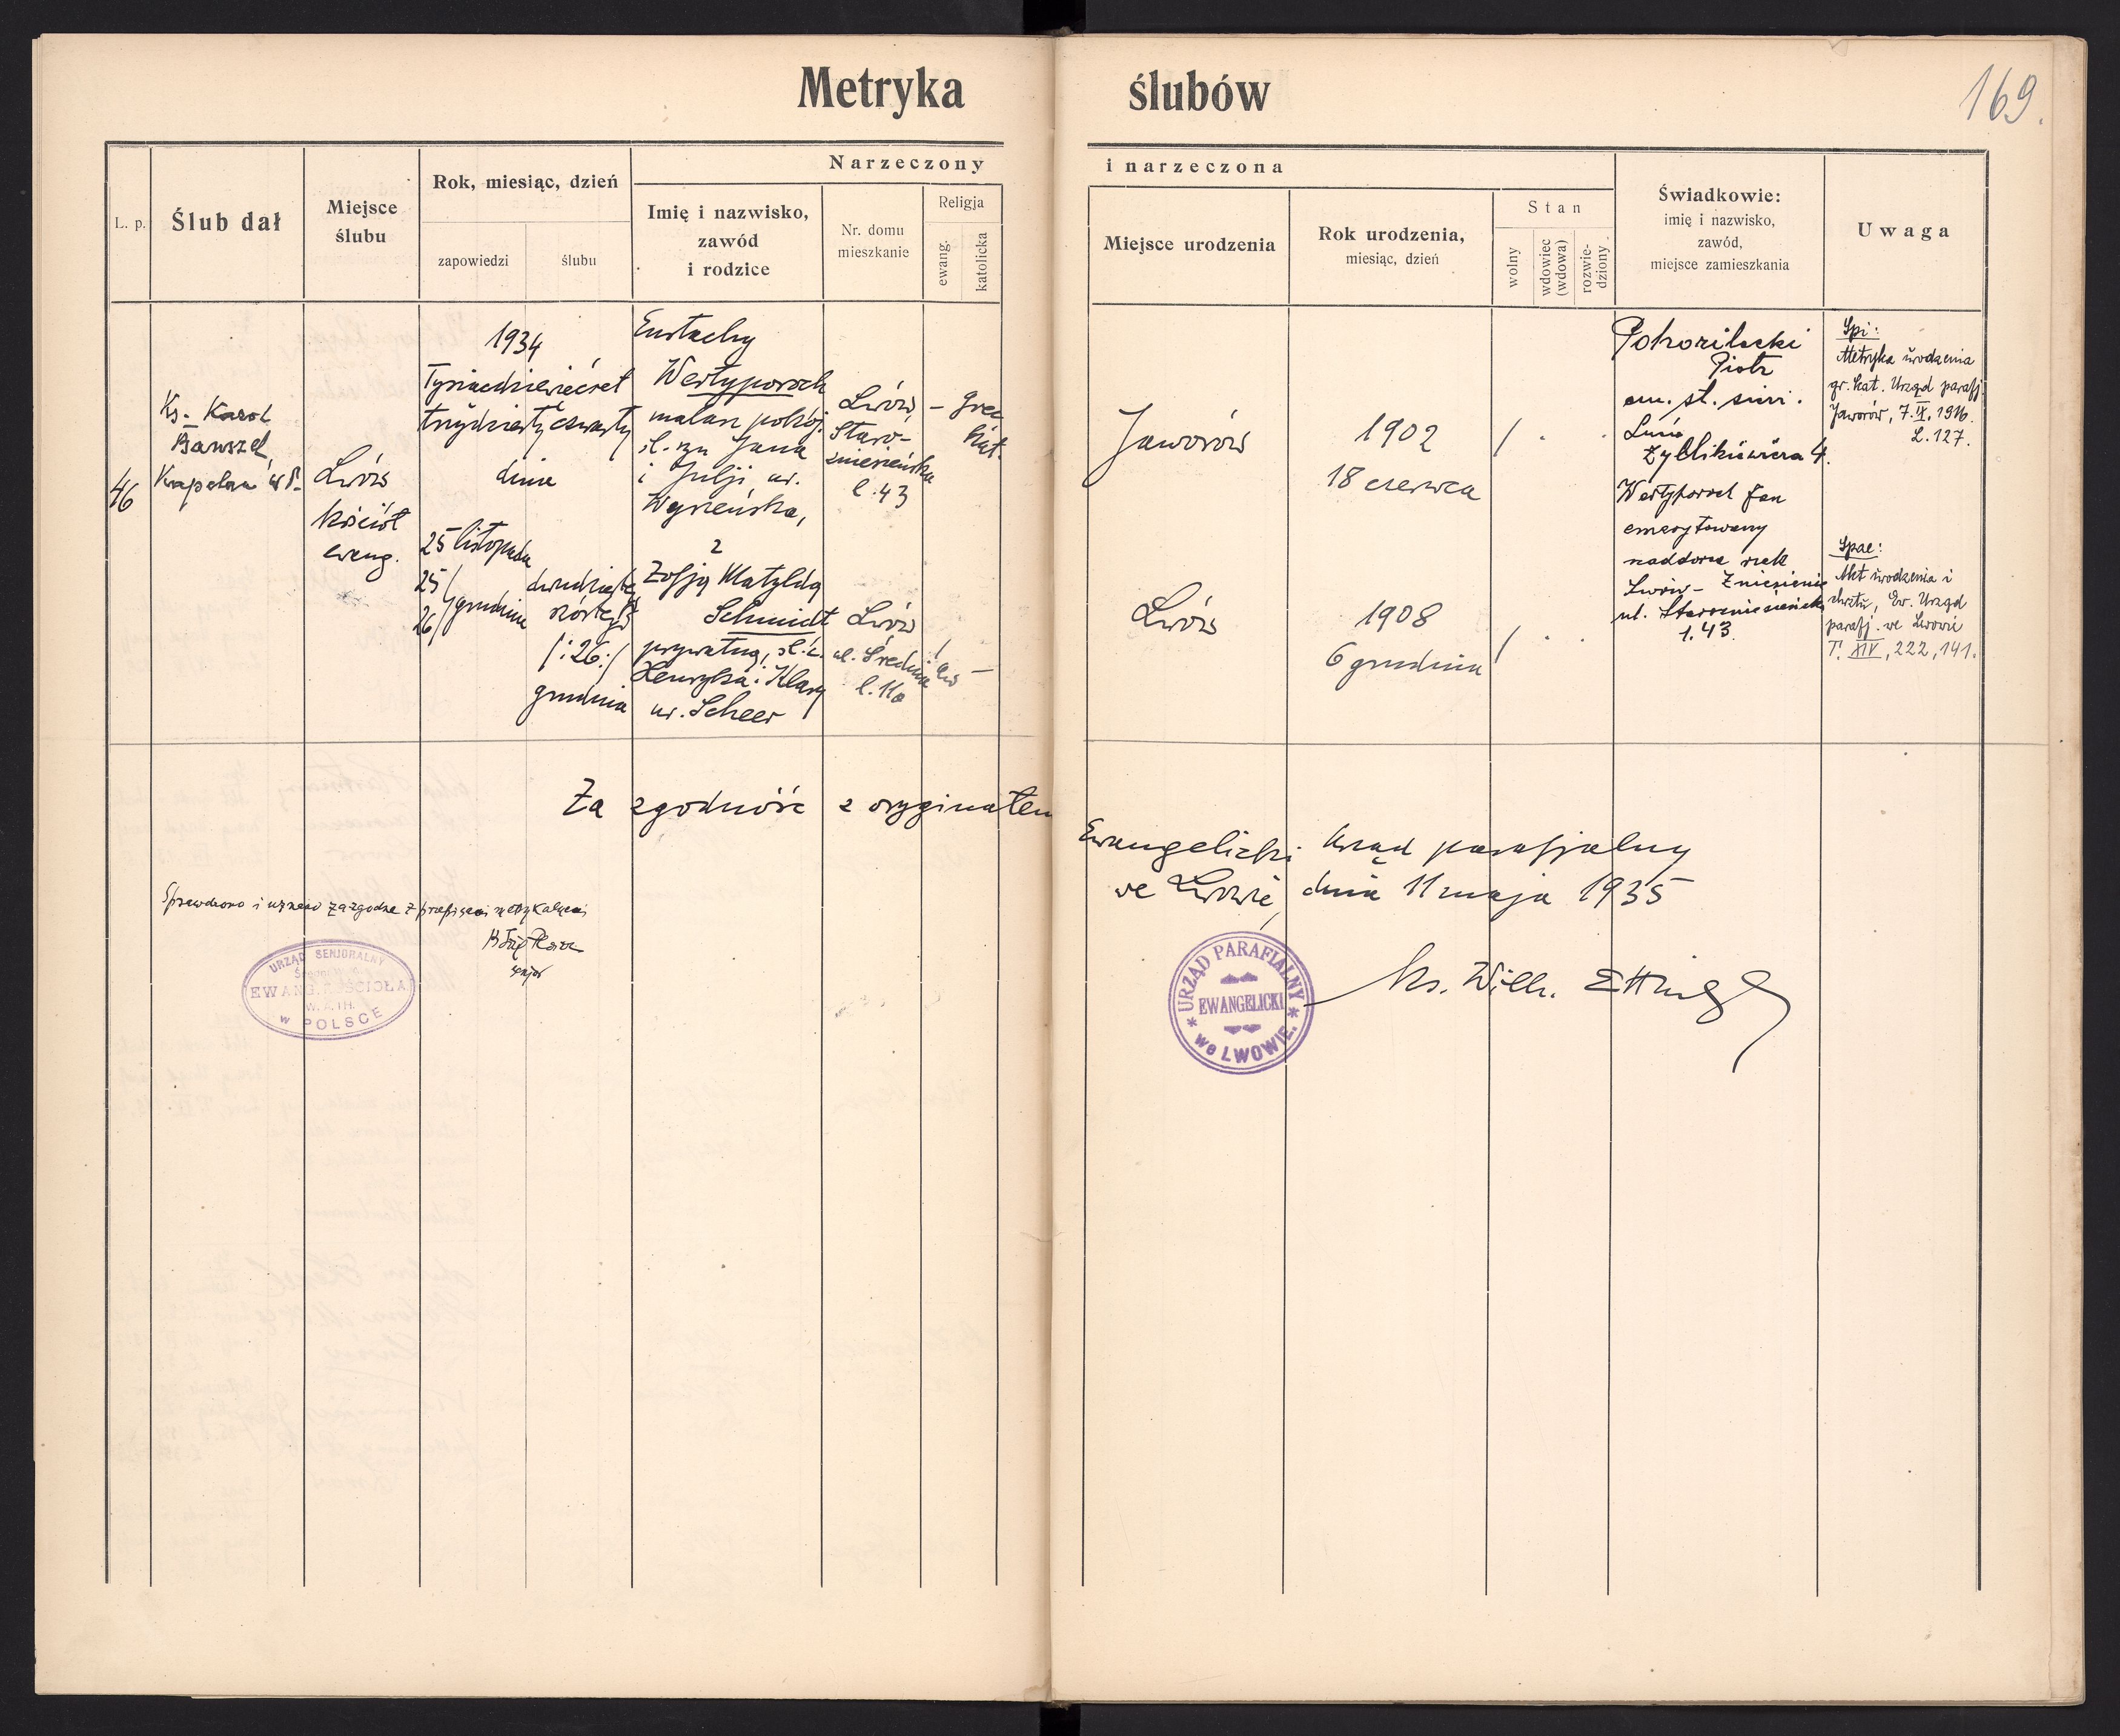 Metryka ślubów
169.
L. p.
Ślub dał
Miejsce
ślubu
Rok, miesiąc, dzień
zapowiedzi
ślubu
Narzeczony i narzeczona
Imię i nazwisko,
zawód
i rodzice
Nr. domu
mieszkanie
Religja
ewang.
katolicka
Miejsce urodzenia
Rok urodzenia,
miesiąc, dzień
Stan
wolny
wdowiec
(wdowa)
rozwie-
dziony
Świadkowie:
imię i nazwisko,
zawód,
miejsce zamieszkania
Uwaga
46
Ks. Karol
Bauszel,
Kapelan W.P.
Lwów
kościół
ewang.
1934
Tysiącdziewięćset
trzydziesty czwarty
dnia
25 listopada
25/
26/ grudnia
dwudziestego
szóstego
/:26:/
grudnia
Eustachy
Wertyporoch
malarz pokoj.
śl. syn Jana
i Julji, ur.
z
Zofją Matyldą
Schmidt
prywatną, śl. c.
Henryka i Klary
ur. Scheer
Lwów,
Staro-
znieseńska
l. 43
Lwów
ul. Średnia
l. 11a
– grec
kat.
/ ew –
Jaworów
Lwów
1902
18 czerwca
1908
6 grudnia
/ . .
/ . .
Pohorilecki
Piotr
em. st.
Zyblikiewicza 4.
Wertyporoch Jan
emerytowany
naddorca
Lwów – Zniesienie
ul. Staroznieseńska
l. 43.
Spi:
Metryka urodzenia
gr. kat. Urząd parafj.
Jaworów, 7.IX.1916.
L. 127.
Spae:
Akt urodzenia i
chrztu, Ew. Urząd
parafj. we Lwowie
T. XIV, 222, 141.
Za zgodność z oryginałem
Ewangelicki Urząd parafjalny
we Lwowie, dnia 11 maja 1935
Ks. Wilh. Ettinger
Sprawdzono i uznano za zgodne z przepisami metrykalnemi
senjor
URZĄD SENJORALNY
EWANG. KOŚCIOŁA
w POLSCE
URZĄD PARAFIALNY
EWANGELICKI
* we LWOWIE. *